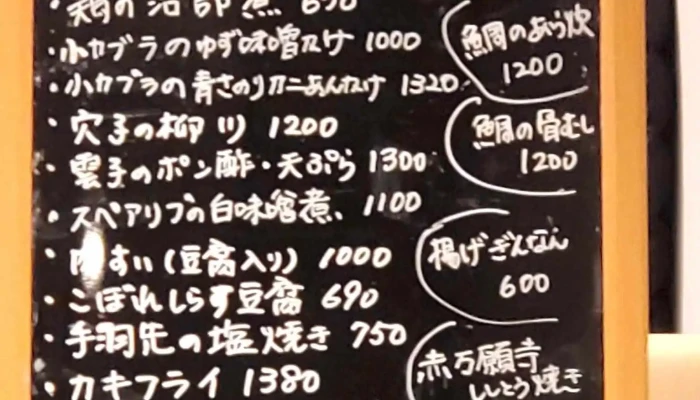 ・鶏の治部煮 690
・小カブラのゆず味噌かけ 1000
・小カブラの青さのりカニあんかけ 1320
・穴子の柳川 1200
・雲子のポン酢・天ぷら 1300
・スペアリブの白味噌煮、 1100
・肉すい(豆腐入り) 1000
・こぼれしらす豆腐 690
・手羽先の塩焼き 750
・カキフライ 1380
鯛のあら炊
1200
鯛の骨むし
1200
揚げぎんなん
600
赤万願寺
ししとう焼き